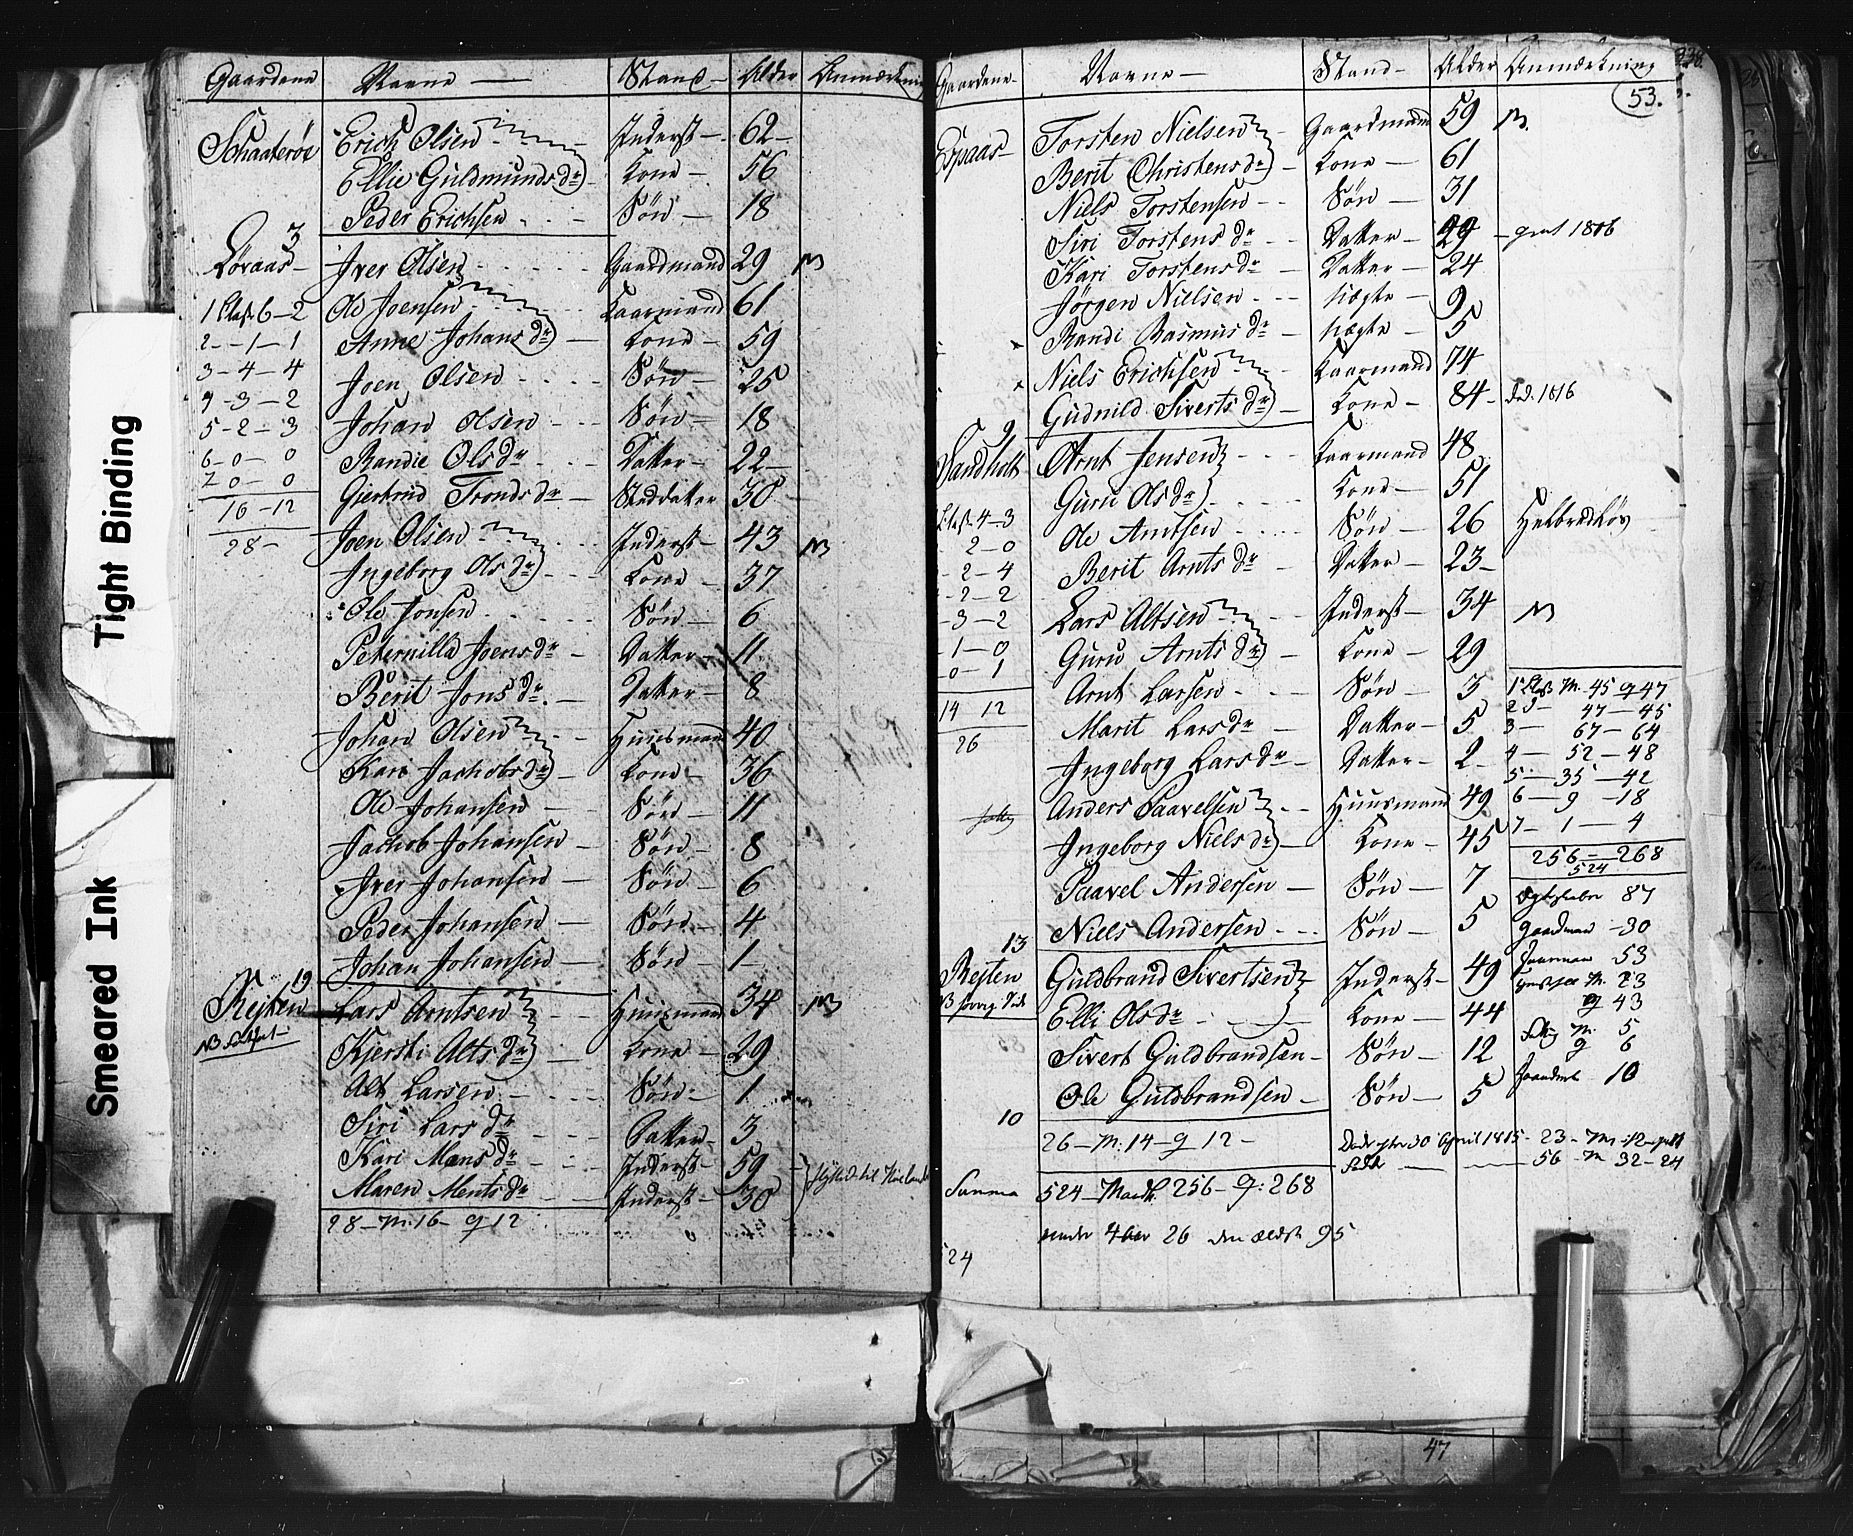 Gaardene Navne Stand Alder Anmærkning
Erich Olsen Inderst 62
Ellie Guldmunds dr Kone 56
Peder Erichsen Søn 18
3
Løvaas Iver Olsen Gaardmand 29 NB
1 Clas. 6-2 Ole Joensen Kaarmand 61
2 - 1 - 1 Anne Johans dr Kone 59
3 - 4 - 4 Joen Olsen Søn 25
4 - 3 - 2
5 - 2 - 3 Johan Olsen Søn 18
6 - 0 - 0 Randie Olsdr Datter 22
7 0 - 0 Giertrud Tronds dr Steddatter 30
16 - 12
28 - Joen Olsen Inderst 43 NB
Ingeborg Ols dr Kone 37
Ole Jonsen Søn 6
Peternilla Joens dr Datter 11
Berit Jons dr Datter 8
Johan Olsen Huusmand 40
Kari Jachobs dr Kone 36
Ole Johansen Søn 11
Jachob Johansen Søn 8
Iver Johansen Søn 6
Peder Johansen Søn 4
19 Johan Johansen Søn 1
Rejten Lars Arntsen Huusmand 34 NB
Kjersti Alts dr Kone 29
Alt Larsen Søn 1
Siri Lars dr Datter 3
Kari Mons dr Inderst 59
Maren Mentsdr Inderst 30
28 - M. 16 - Q 12

Gaardene Navne Stand Alder Anmærkning
53.
Espaas Torsten Nielsen Gaardmand 59 NB
Berit Christens dr Kone 61
Niels Torstensen Søn 31
Siri Torstens dr Datter 29
Kari Torstens dr Datter 24
Jørgen Nielsen Uægte 9
Randi Rasmus dr Uægte 5
Niels Erichsen Kaarmand 74
Gudnild Siverts dr Kone 84 ded. 1816
9
Sandholt Arnt Jensen Kaarmand 48
Guru Olsdr Kone 51
Clas. 4-3 Ole Arntsen Søn 26
2-0
2-4 Berit Arnts dr Datter 23
2-2
3-2 Lars Altsen Inderst 34 NB
1-0 Guru Arnts dr Kone 29
0 1 Arnt Larsen Søn 3 1 Clas M. 45 Q 47
2 47 - 45
14 12 Marit Larsdr Datter 5 3 - 67 - 64
26 Ingeborg Larsdr Datter 2 4 - 52 - 48
5 - 35 - 42
Anders Paavelsen Huusmand 49 6 - 9 - 18
Ingeborg Niels dr Kone 45 7 - 1 - 4
256 - 268
524
Paavel Andersen Søn 7 87
13 Niels Andersen Søn 5 Gaardman 30
Rejten Guldbrand Sivertsen Inderst 49 53
M. 23
Elli Olsdr Kone 44 Q 43
M. 5
Sivert Guldbrandsen Søn 12 Q 6
Ole Guldbrandsen Søn 5 10
10
26 - M. 14 - Q 12 - 30 April 1815 - 23 - M. 12
56 M 32 - 24
Summa 524 - Mandk. 256 - Q: 268
under 4 aar 26 den ældste 95
24
47
Tight Binding
Smeared Ink